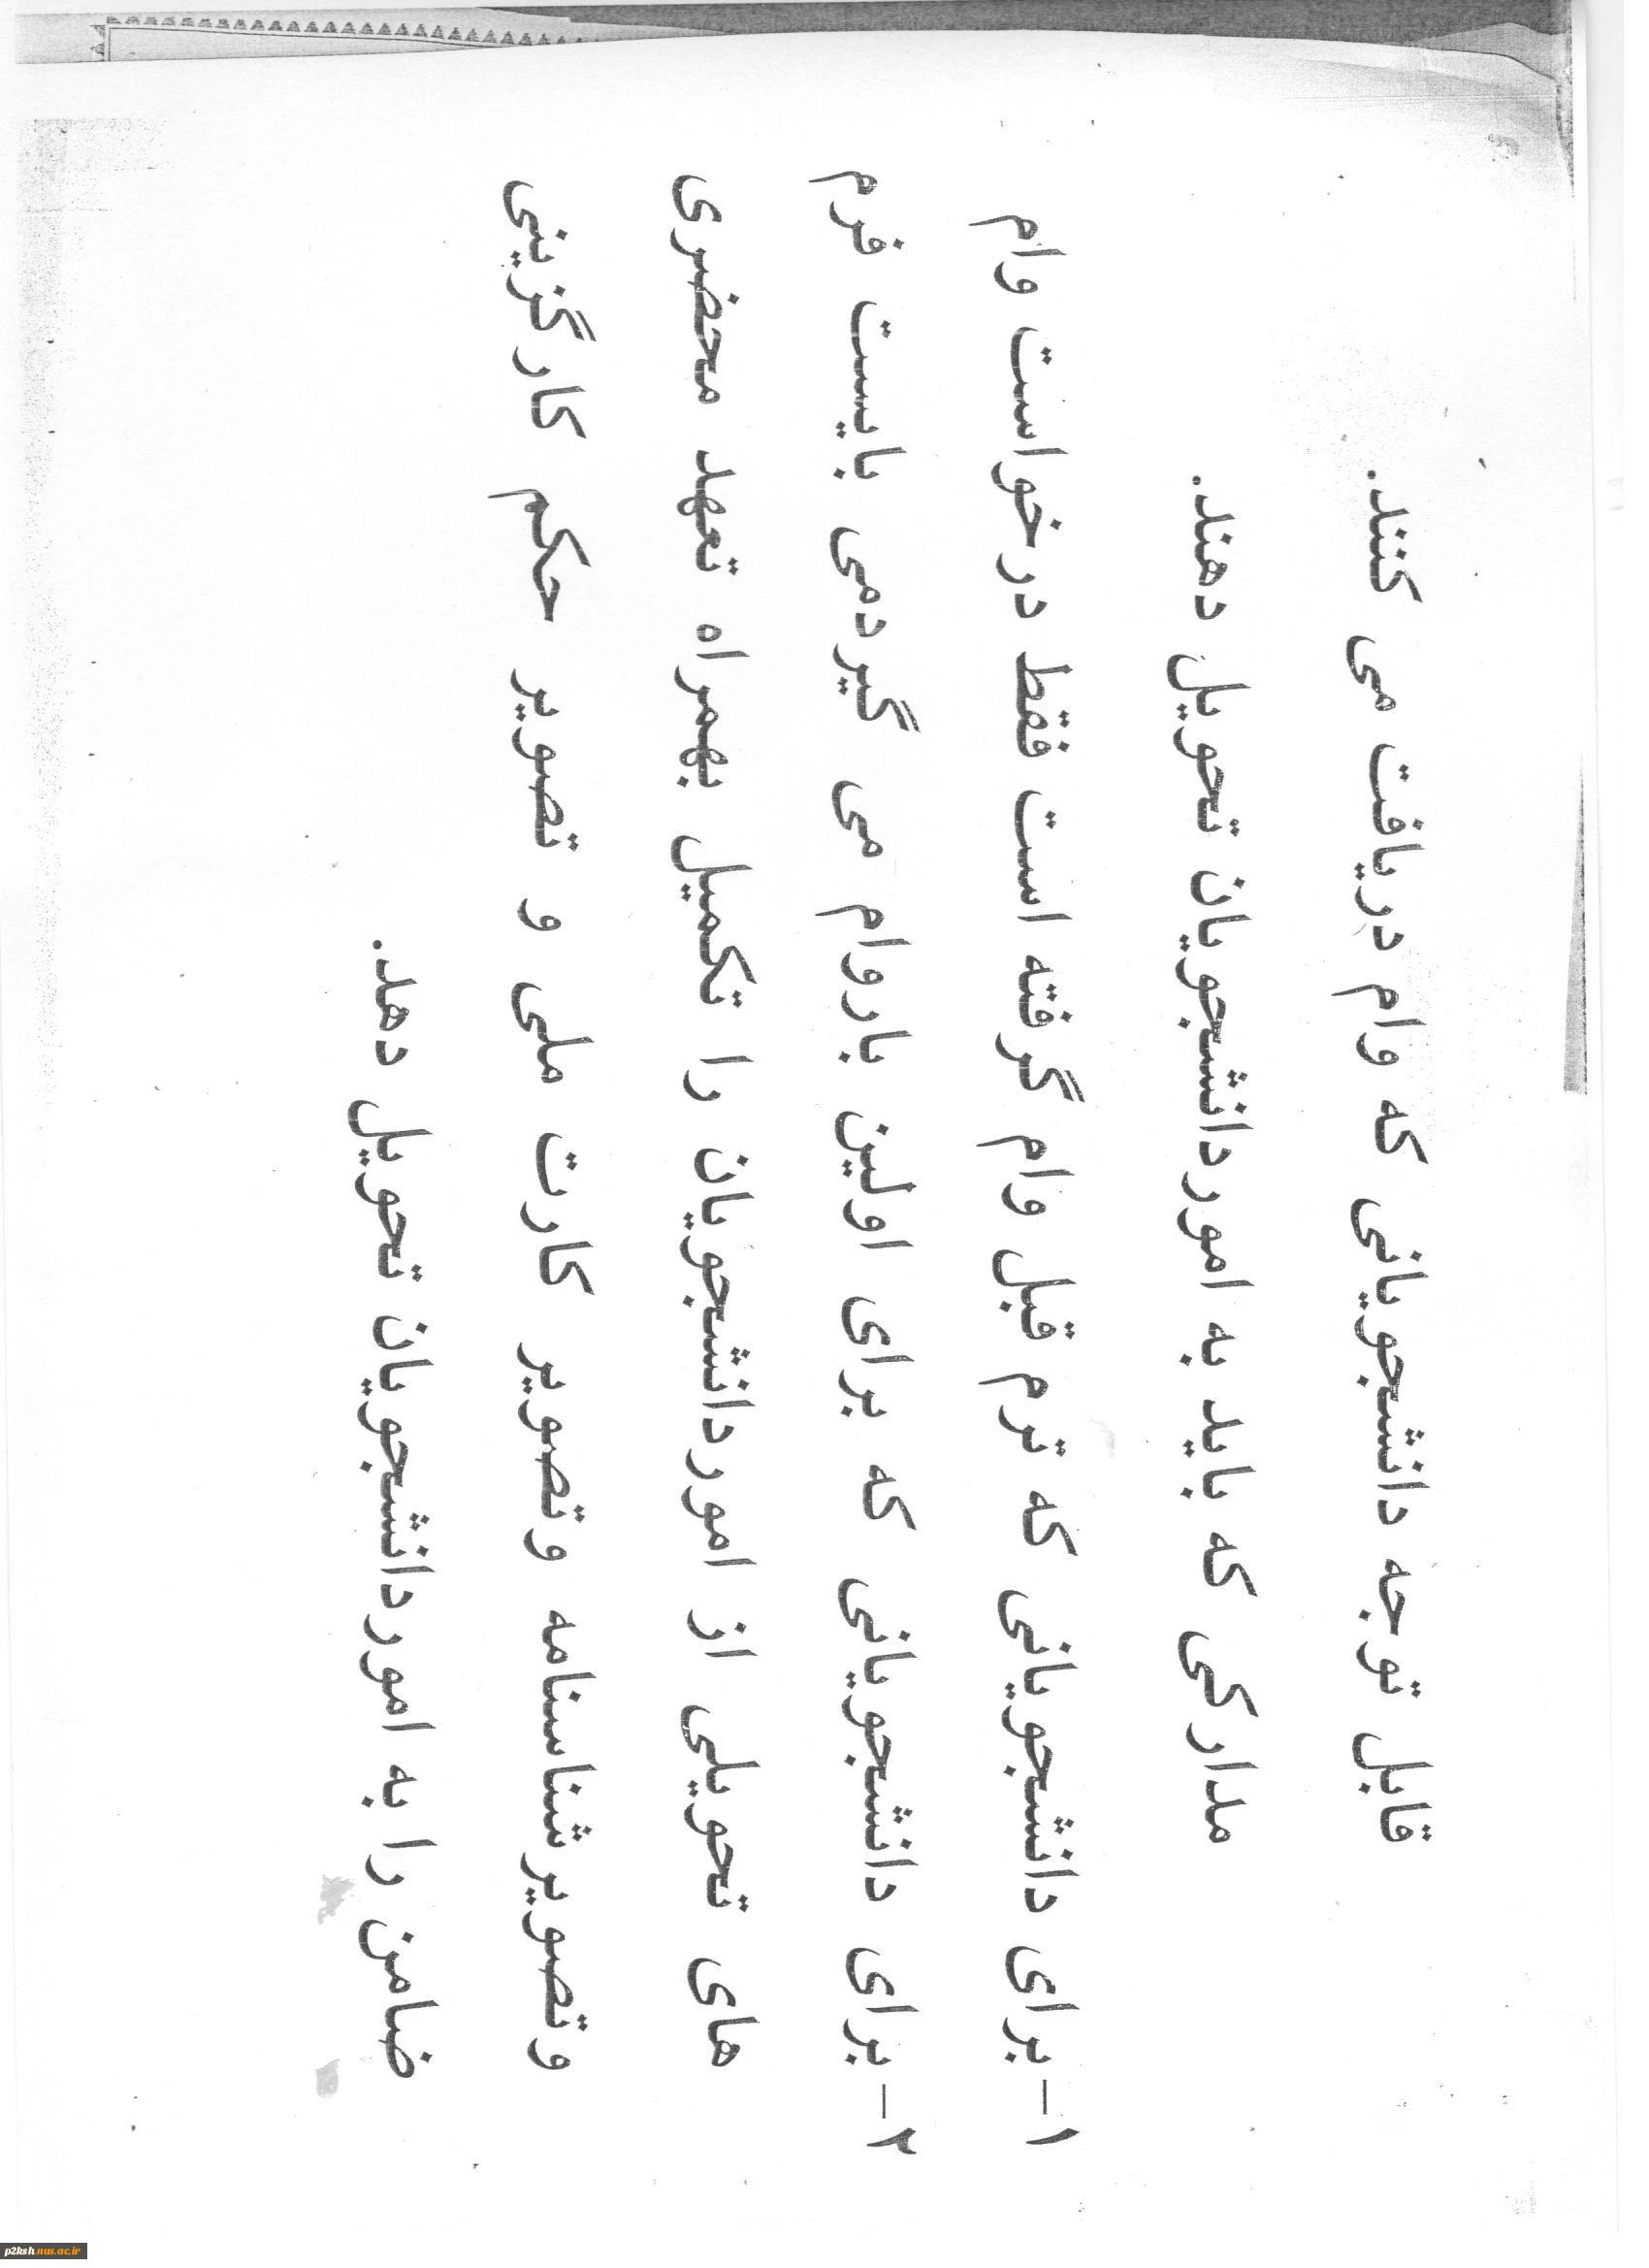 قابل توجه دانشجویانی که وام دریافت می کنند.
مدارکی که باید به اموردانشجویان تحویل دهند.
۱-برای دانشجویانی که ترم قبل وام گرفته است فقط درخواست وام
۲-برای دانشجویانی که برای اولین باروام می گیردمی بایست فرم
های تحویلی از اموردانشجویان را تکمیل بهمراه تعهد محضری
وتصویرشناسنامه وتصویر کارت ملی و تصویر حکم کارگزینی
ضامن را به اموردانشجویان تحویل دهد.
p2ksh.nus.ac.ir